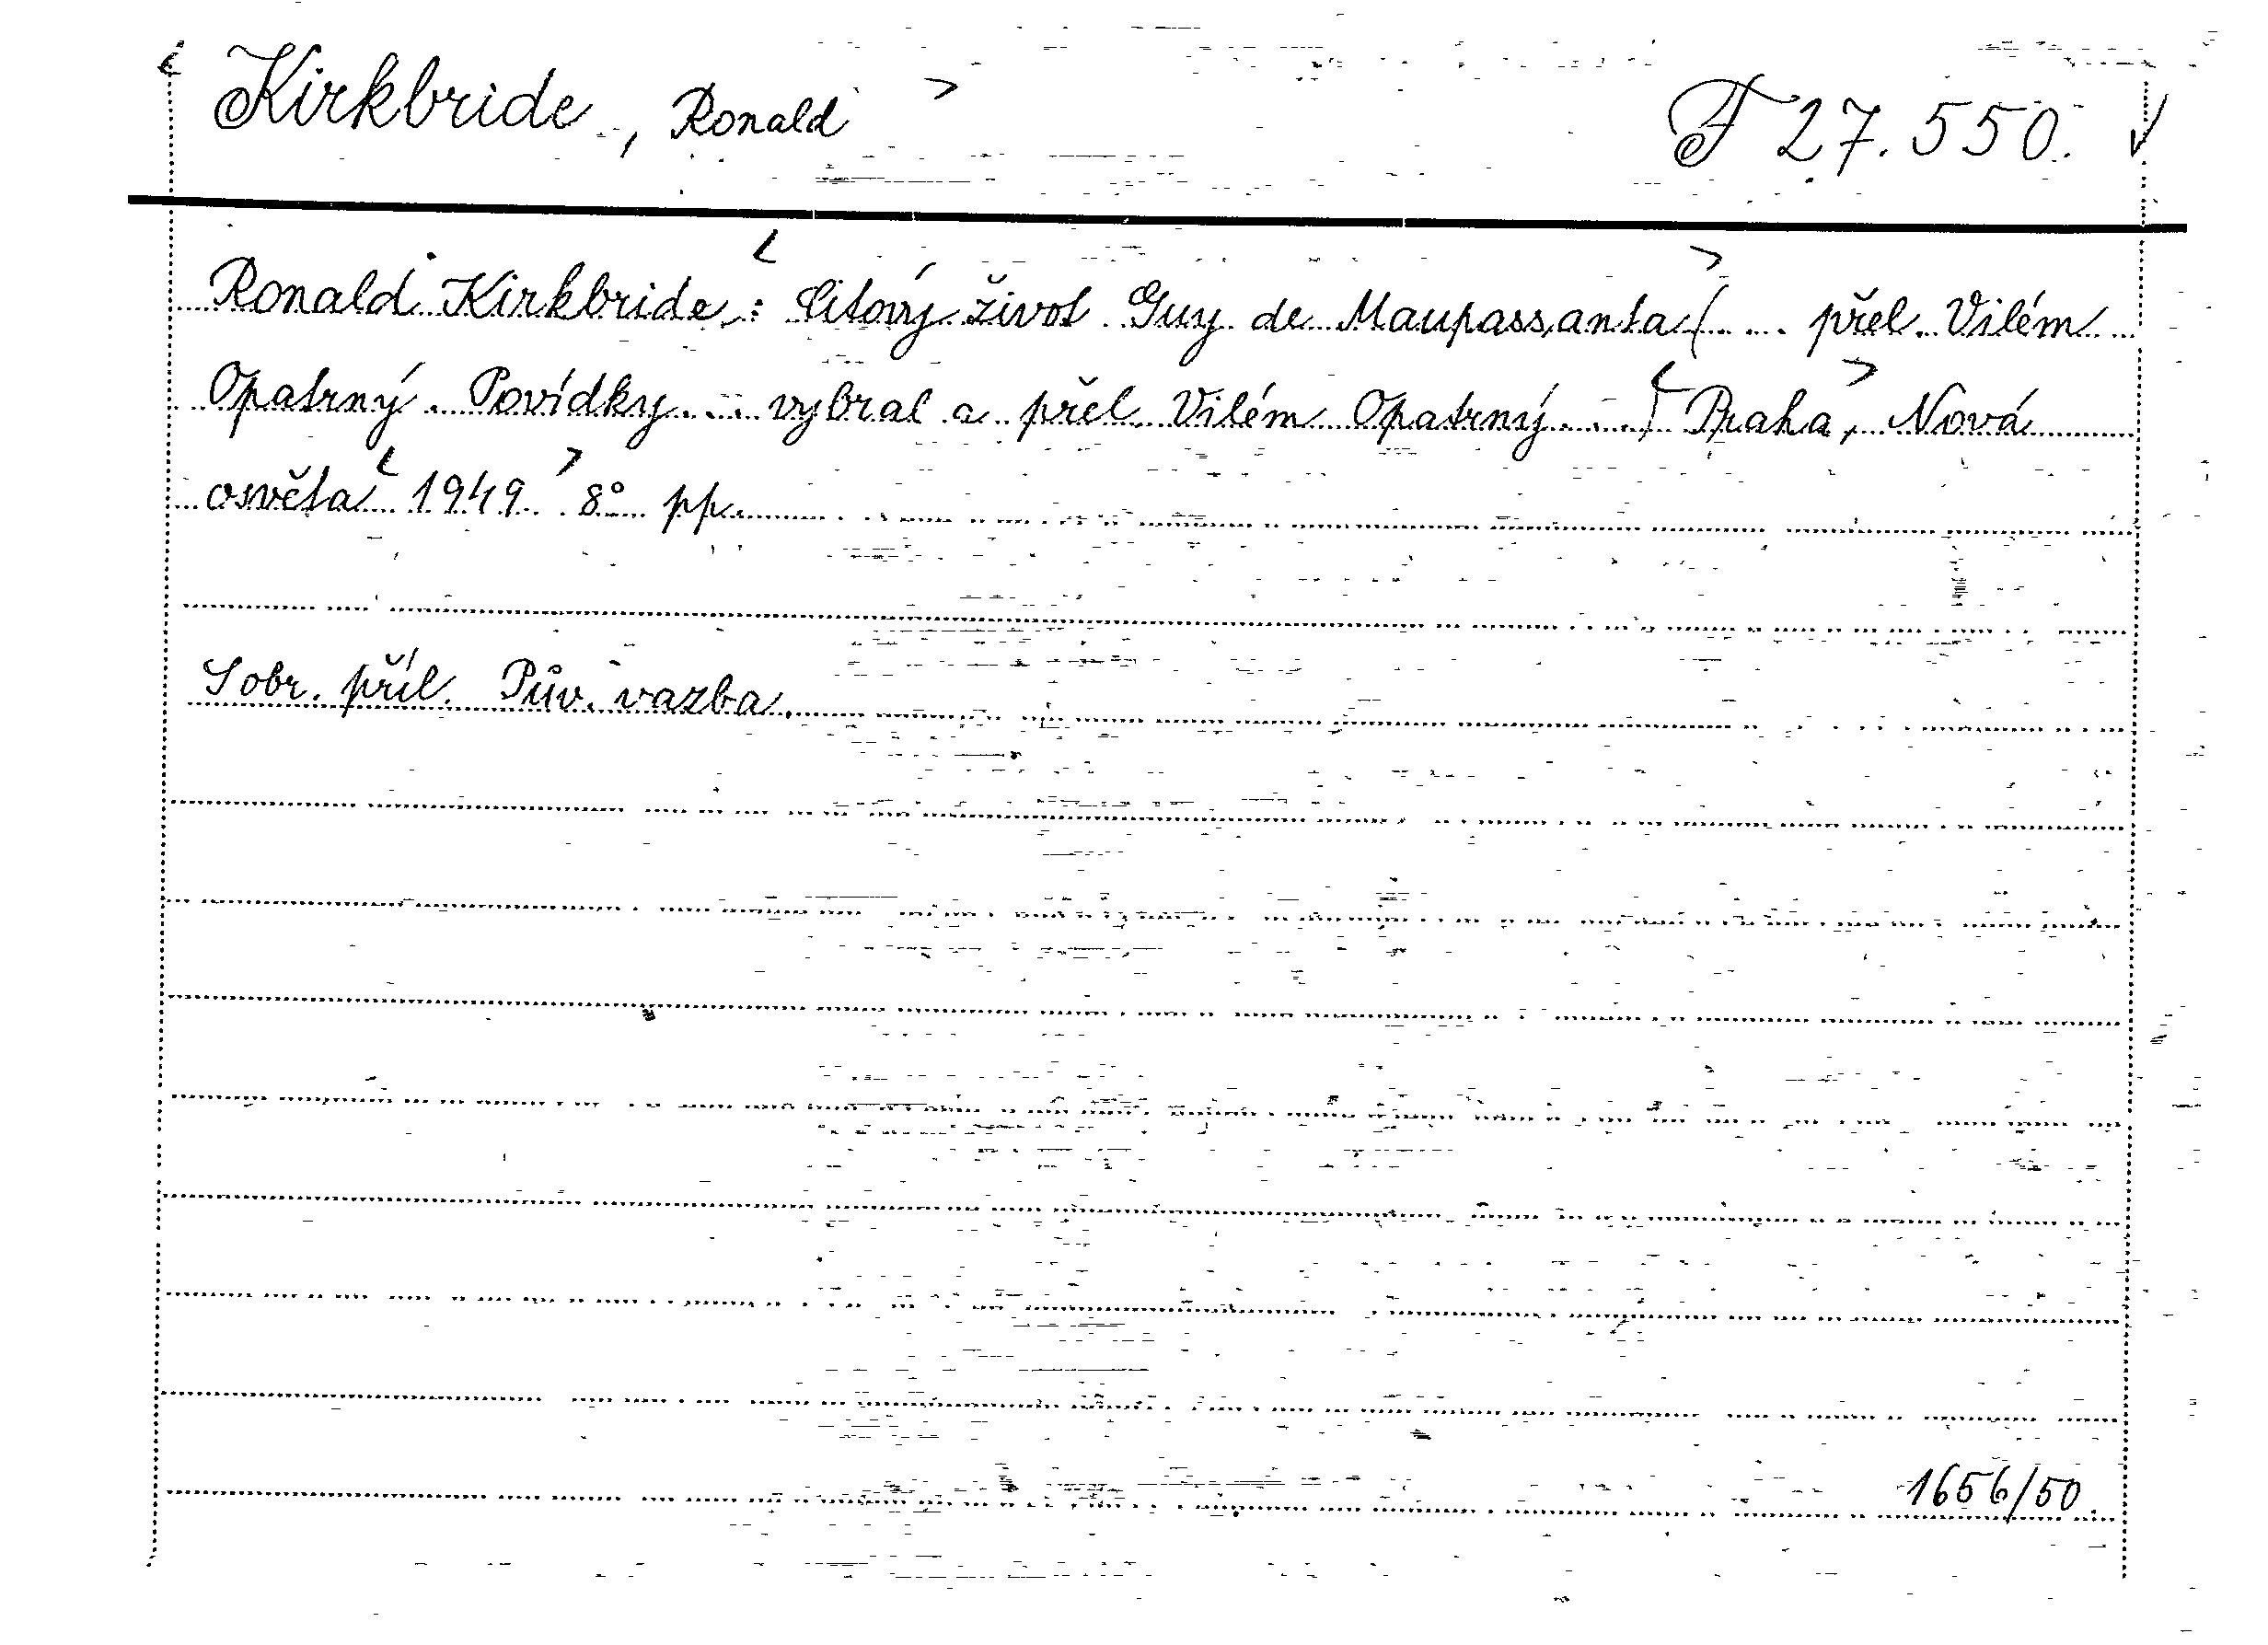 < Kirkbride, Ronald > F 27.550.
Ronald Kirkbride: < Citový život Guy de Maupassanta > (... přel. Vilém
Opatrný. Povídky... vybral a přel. Vilém Opatrný...) < Praha, > Nová
osvěta < 1949 > 8° pp.
S obr. příl. Pův. vazba.
1656/50.